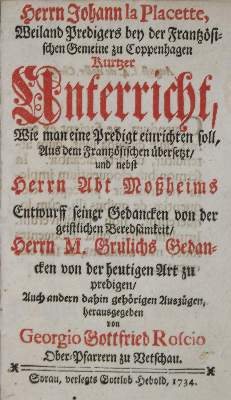 Herrn Johann la Placette,
Weiland Predigers bey der Frantzösi-
schen Gemeine zu Coppenhagen
Kurtzer
Unterricht,
Wie man eine Predigt einrichten soll,
Aus dem Frantzösischen übersetzt/
und nebst
Herrn Abt Moßheims
Entwurff seiner Gedancken von der
geistlichen Beredsamkeit/
Herrn M. Grulichs Gedan-
cken von der heutigen Art zu
predigen/
Auch andern dahin gehörigen Auszügen,
herausgegeben
von
Georgio Gottfried Roscio
Ober-Pfarrern zu Vetschau.
Sorau, verlegts Gottlob Hebold, 1734.